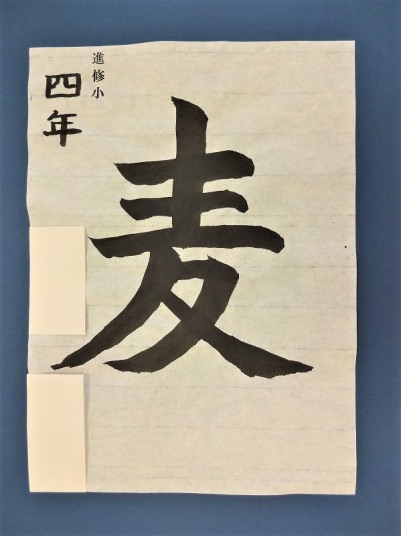 進修小
四年
麦